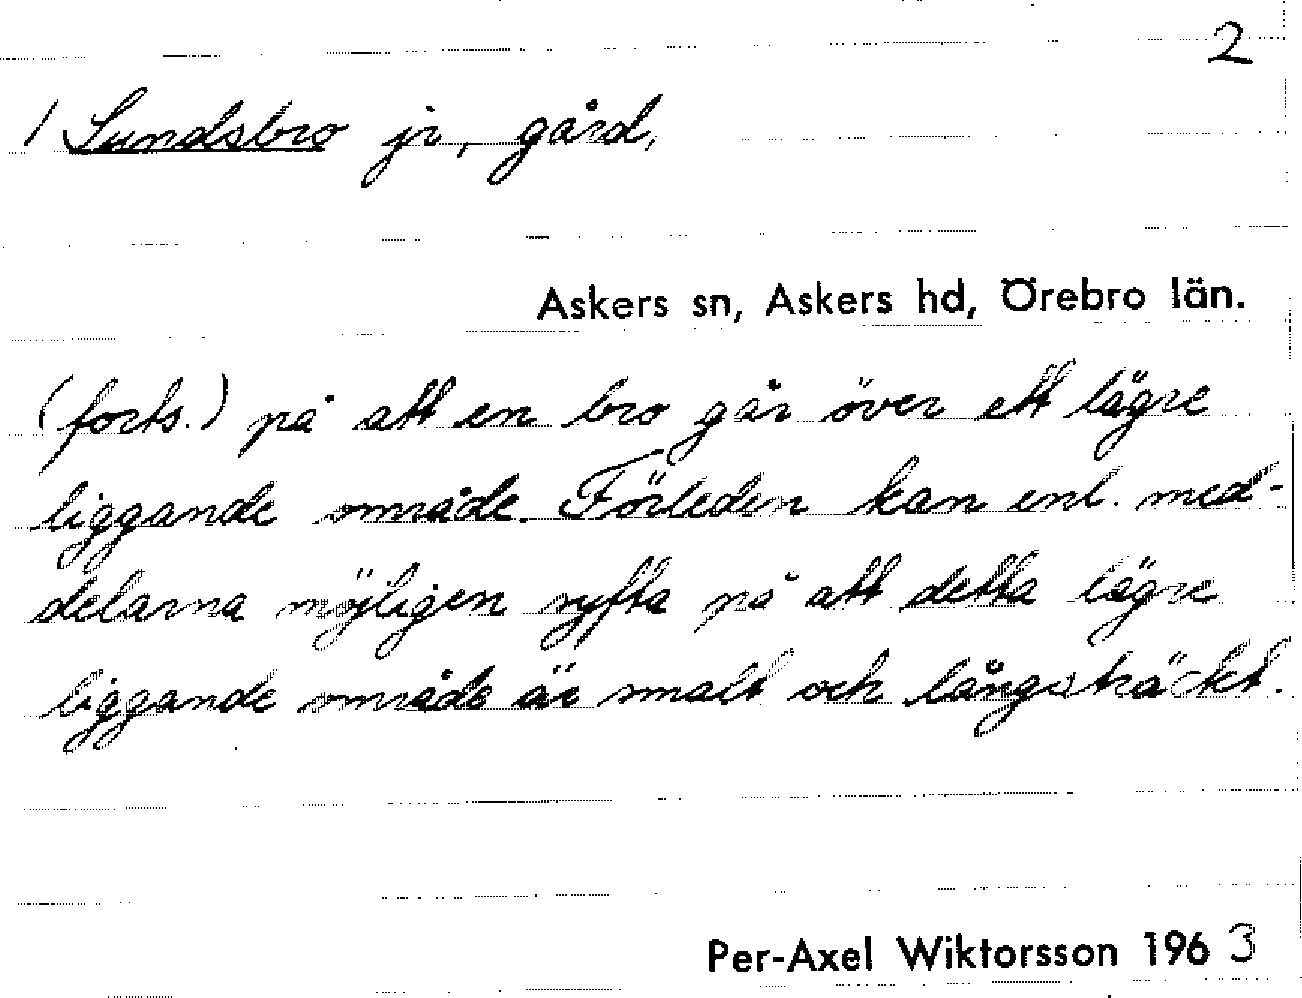 2
/ Sundsbro jr, gård,
Askers sn, Askers hd, Örebro län.
(forts.) på att en bro går över ett lägre
liggande område. Förleden kan enl. med-
delarna möjligen syfta på att detta lägre
liggande område är smalt och långsträckt.
Per-Axel Wiktorsson 1963